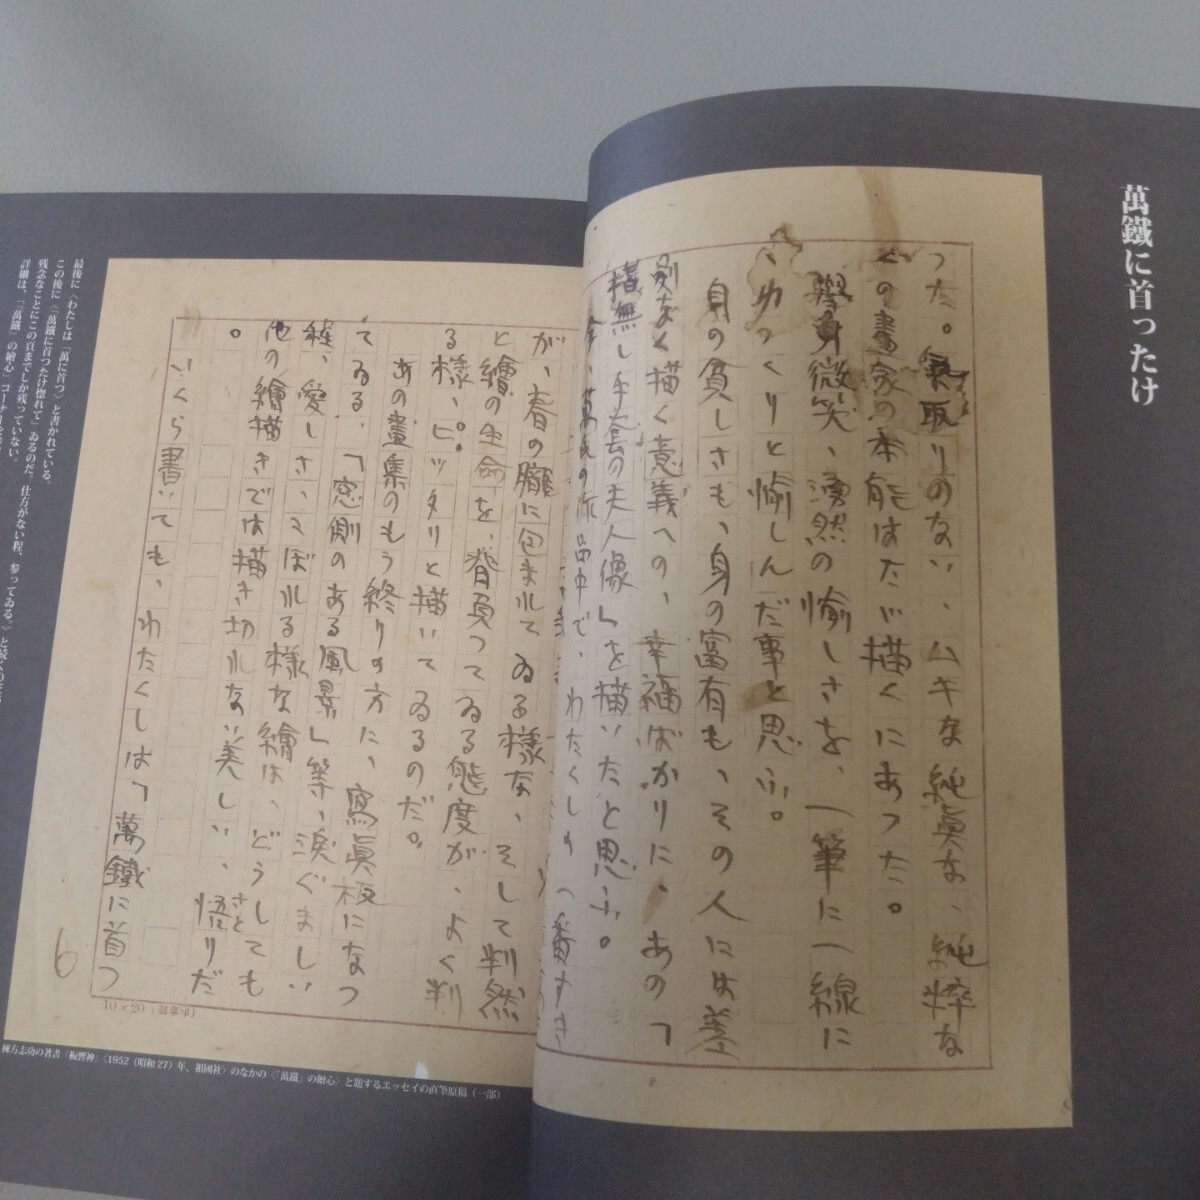 萬鐵に首ったけ
った。気取りのない、ムキな純眞な、純粋な
この畫家の本能はたゞ描くにあった。
擧身微笑、湧然の愉しさを、一筆に一線に
、ゆっくりと愉しんだ事と思ふ。
身の貧しさも、身の富有も、その人には差
別なく描く意義への、幸福ばかりに、あの「
描無し手套の夫人像」を描いたと思ふ。
作品中で、わたくしの一番すき
が、春の朧に包まれてゐる様な、そして判然
と繪の生命を、背負ってゐる態度が、よく判
る様、ピッタリと描いてゐるのだ。
あの畫集のもう終りの方に、寫眞板になっ
てゐる、「窓側のある風景」等、涙ぐましい
程、愛しさ、こぼれる様な繪は、どうしても
他の繪描きでは描き切れない美しい、悟りだ
さと
。
いくら書いても、わたくしは「萬鐵に首っ
6
10×20
最後に〈わたしは「萬に首っ〉と書かれている。
この後に〈「萬鐵に首ったけ惚れて」ゐるのだ。仕方がない程、参ってゐる。〉と続くのだが
残念なことにこの頁までしか残っていない。
詳細は、「「萬鐵」の繪心」コーナー
棟方志功の著書『板響神』〈1952（昭和27）年、祖國社〉のなかの〈「萬鐵」の繪心〉と題するエッセイの直筆原稿（一部）